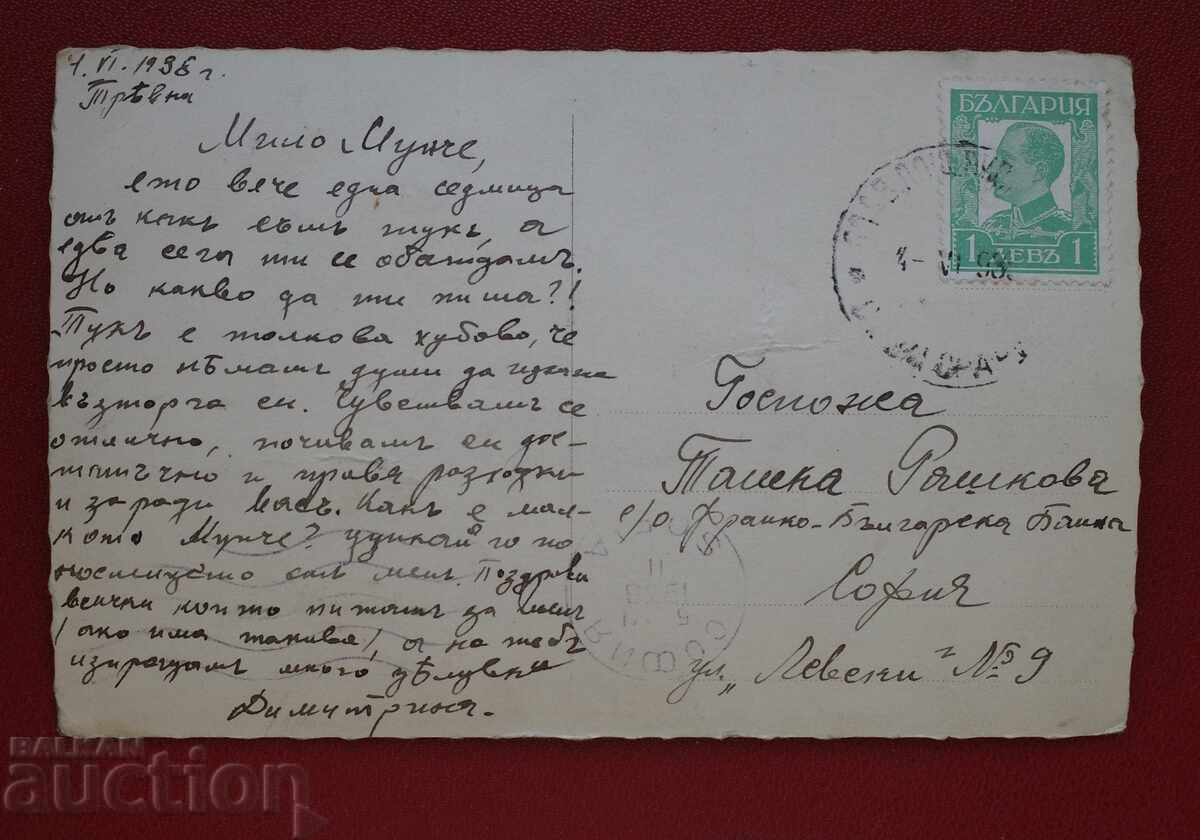 1. VI. 1938 г.
Трѣвна
Мило Мунче,
ето вече една седмица
отъ какъ съмъ тукъ, а
едва сега ти се обаждамъ.
Но какво да ти пиша?!
Тукъ е толкова хубаво, че
просто нѣмамъ думи да изкажа
възторга си. Чувствамъ се
отлично, почивамъ си дос-
татъчно и правя разходки
и заради васъ. Какъ е мал-
кото Мунче? го по
носленцето отъ мене. Поздрави
всички които питатъ за мене
(ако има такива), а на тебъ
изпращамъ много цѣлувки
Димитрина.
БЪЛГАРИЯ
1 ЛЕВЪ 1
Госпожа
Ташка Рашкова
с/о Франко-Българска Банка
София
ул. „Левски“ № 9
СОФИЯ
BALKAN
auction